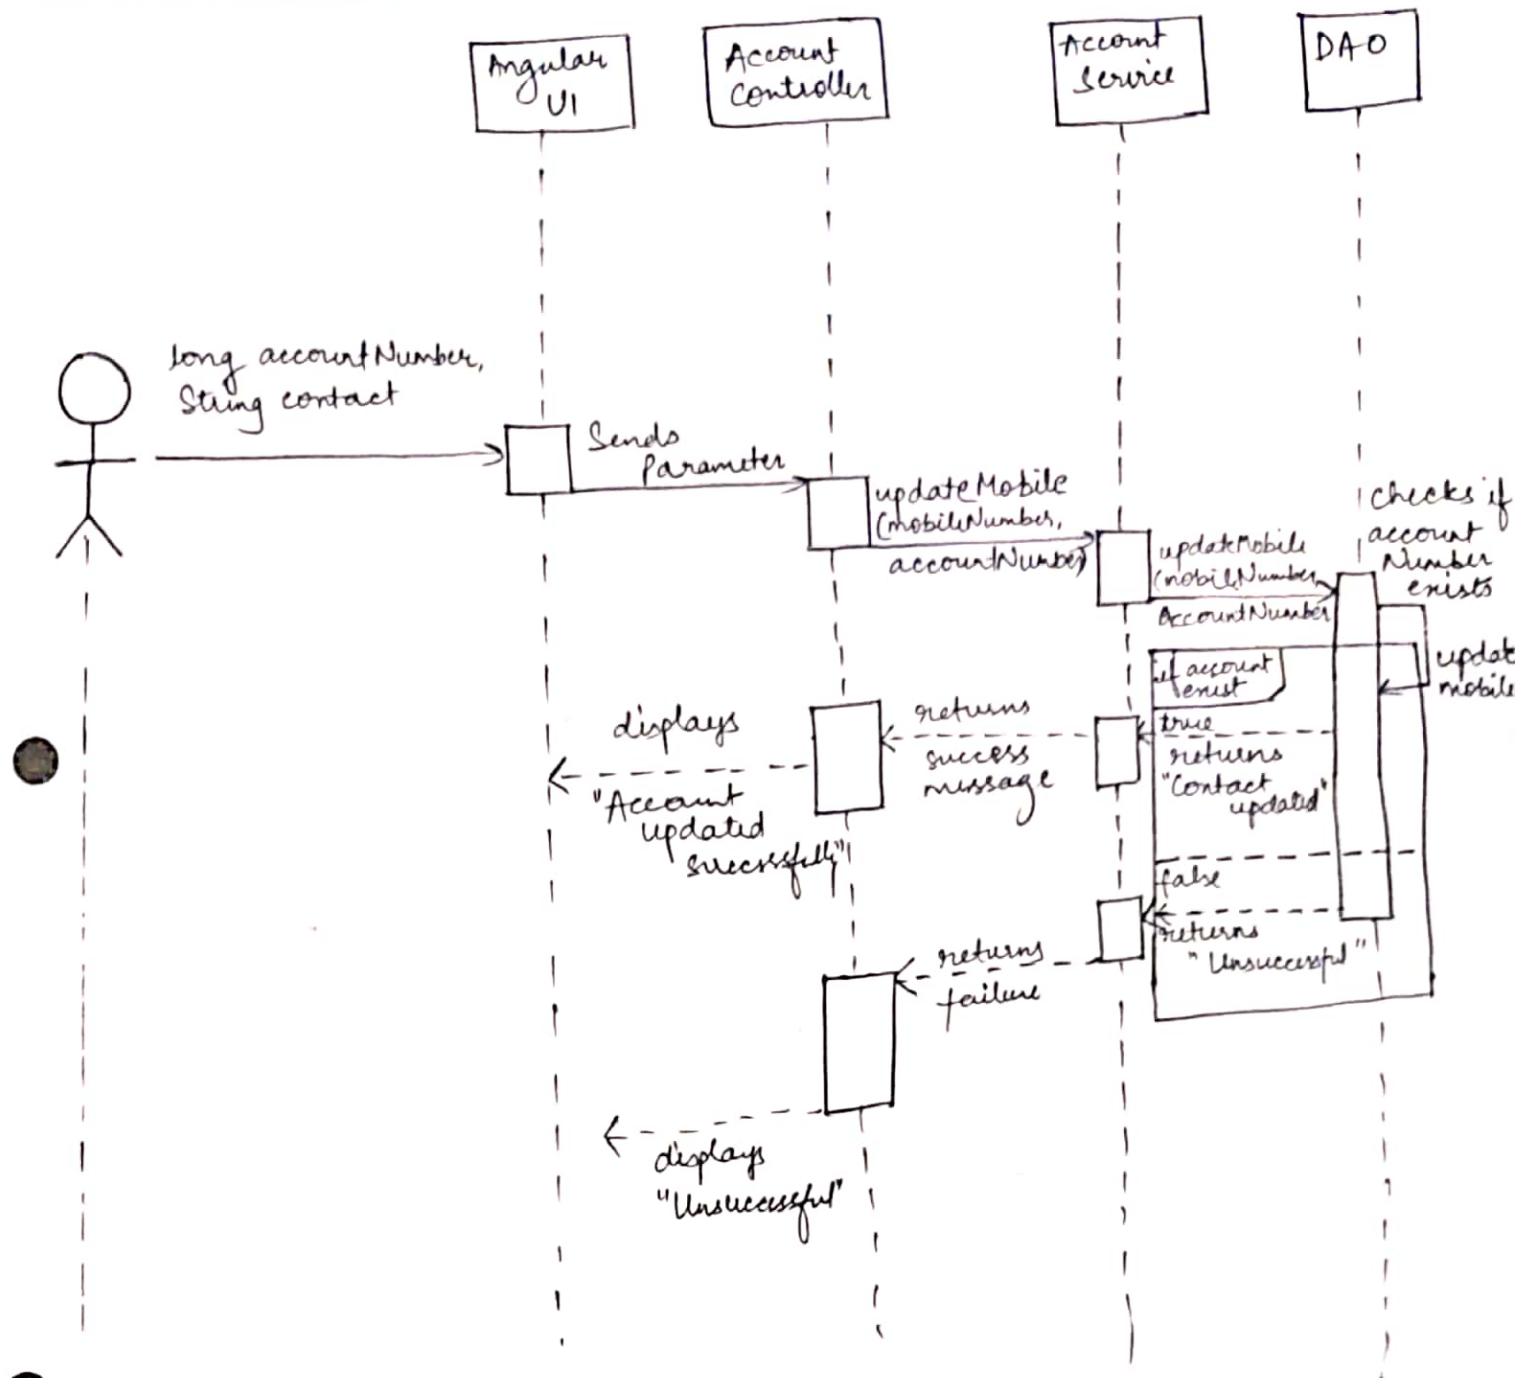 Angular
UI
Account
Controller
Account
Service
DAO
long accountNumber,
String contact
Sends
Parameter
updateMobile
(mobileNumber,
accountNumber)
updateMobile
(mobileNumber
AccountNumber
checks if
account
Number
exists
if account
exist
update
mobile
true
returns
"Contact
updated"
returns
success
message
displays
"Account
updated
successfully"
false
returns
"Unsuccessful"
returns
failure
displays
"Unsuccessful"